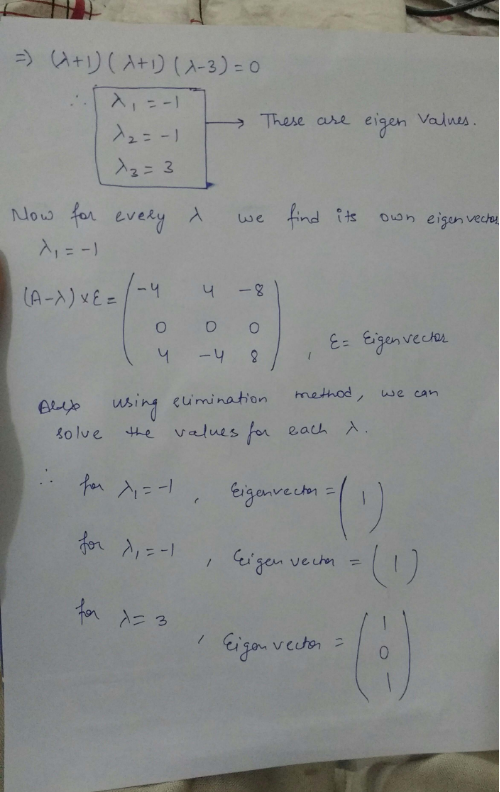 ⇒ (λ+1)(λ+1)(λ-3)=0
∴ λ₁ = -1
λ₂ = -1 → These are eigen Values.
λ₃ = 3
Now for every λ we find its own eigenvector
λ₁ = -1
(A-λ)×E = ( -4 4 -8
0 0 0
4 -4 8 ) , E = Eigenvector
using elimination method, we can
solve the values for each λ.
∴ for λ₁ = -1 , Eigenvector = ( 1 )
for λ₁ = -1 , Eigenvector = ( 1 )
for λ = 3 , Eigenvector = ( 1
0
1 )